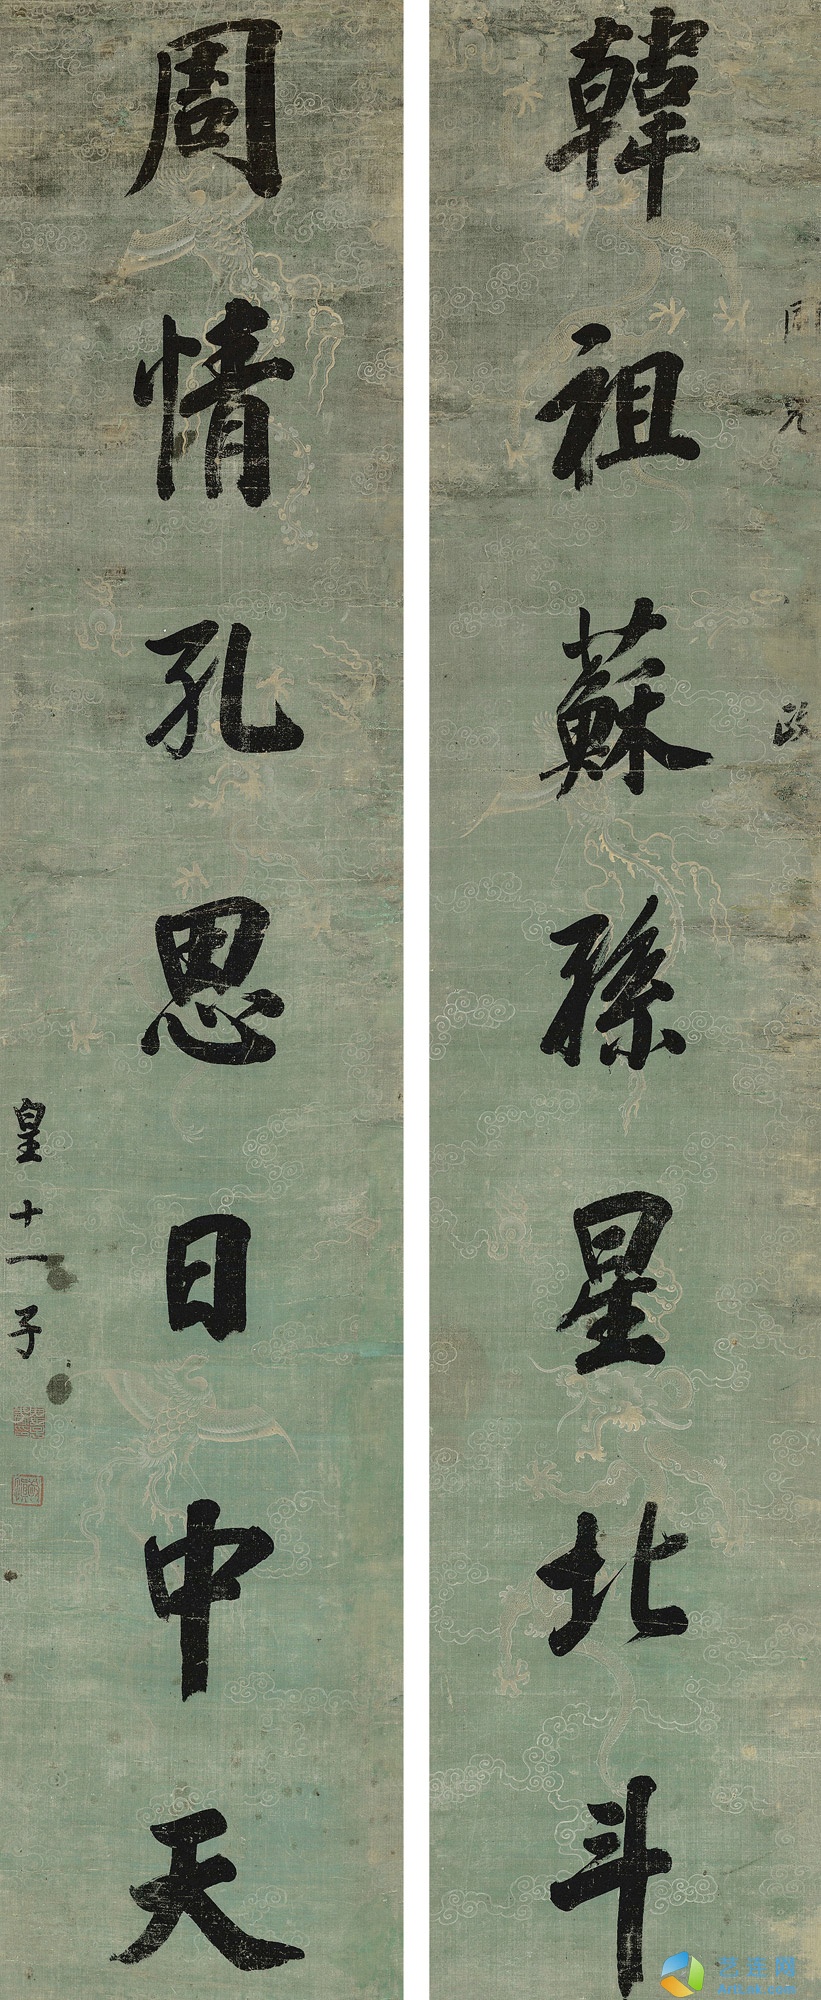 韓祖蘇孫星北斗
周情孔思日中天
兄
政
皇十一子